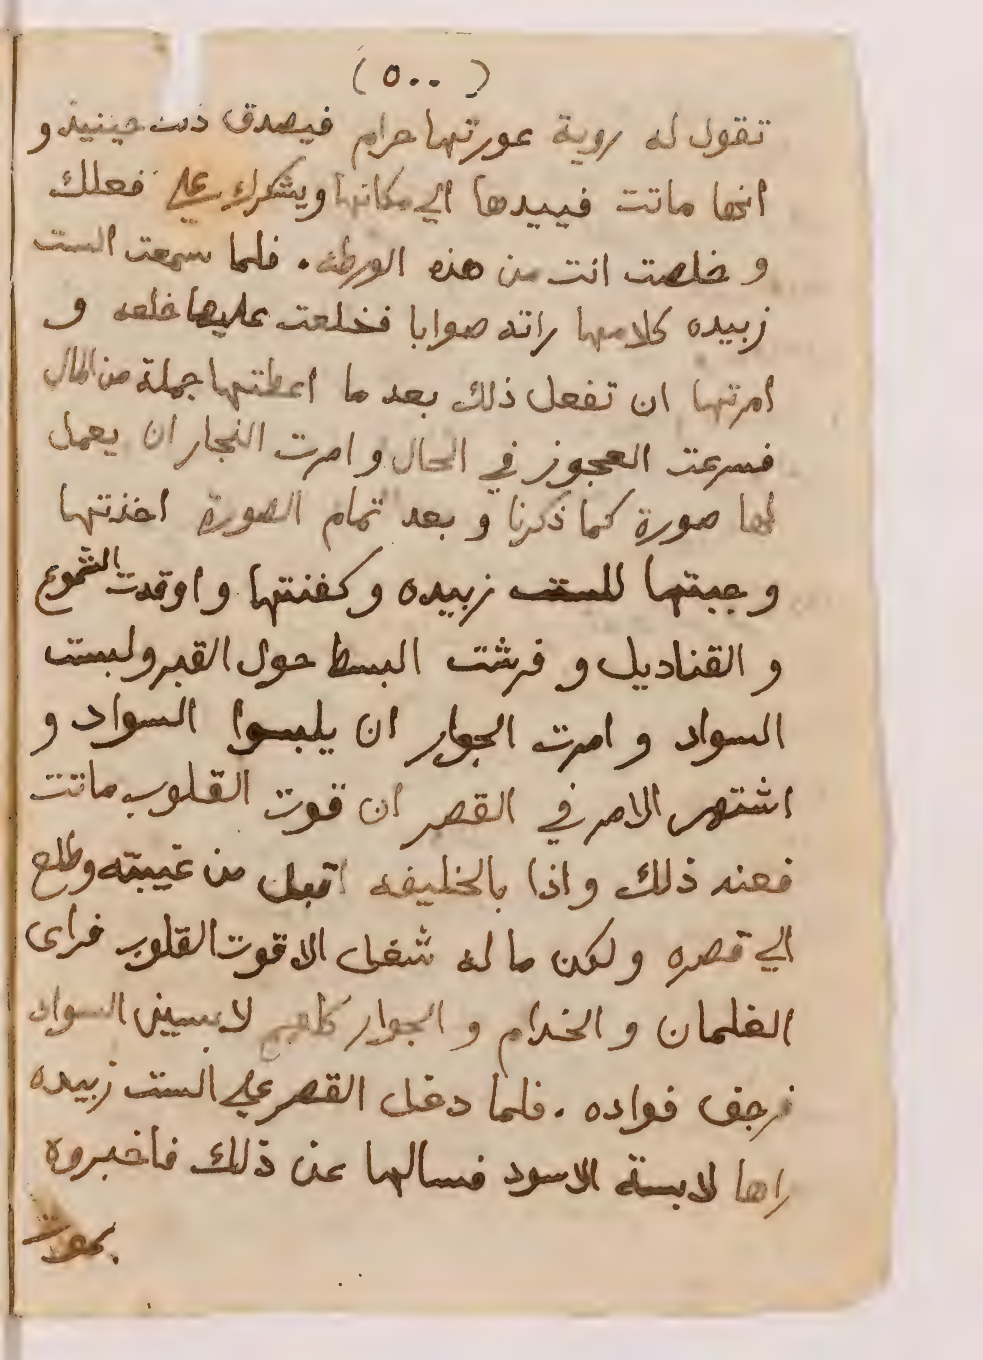 (٥٠٠)
تقول له روية عورتها حرام فيصدق ذلك حينيذ و
انها ماتت فييدها الي مكانها ويشكرك علي فعلك
و خلصت انت من هذه الورطه . فلما سمعت الست
زبيده كلامها راته صوابا فخلعت عليها خلعه و
امرتها ان تفعل ذلك بعد ما اعطتها جملة من المال
فسرعت العجوز في الحال و امرت النجار ان يعمل
لها صورة كما ذكرنا و بعد تمام الصورة اخذتها
و جبتها للست زبيده و كفنتها و اوقدت الشموع
و القناديل و فرشت البسط حول القبر ولبست
السواد و امرت الجوار ان يلبسوا السواد و
اشتهر الامر في القصر ان قوت القلوب ماتت
فعند ذلك و اذا بالخليفه اقبل من غيبته وطلع
الي قصره و لكن ما له شغل الا قوت القلوب فراى
الغلمان و الخدام و الجوار كلهم لابسين السواد
فرجف فواده . فلما دخل القصر علي الست زبيده
راها لابسة الاسود فسالها عن ذلك فاخبروه
بموت